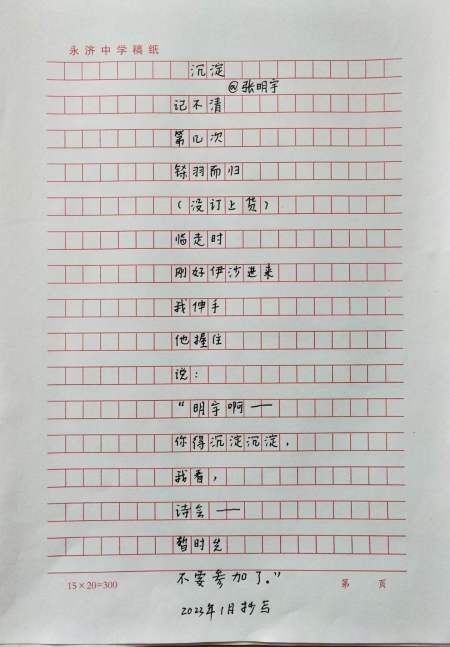 永济中学稿纸
沉淀
@张明宇
记不清
第几次
铩羽而归
(没订上货)
临走时
刚好伊沙进来
我伸手
他握住
说:
“明宇啊——
你得沉淀沉淀,
我看,
诗会——
暂时先
不要参加了。”
15×20=300 第 页
2023年1月抄写